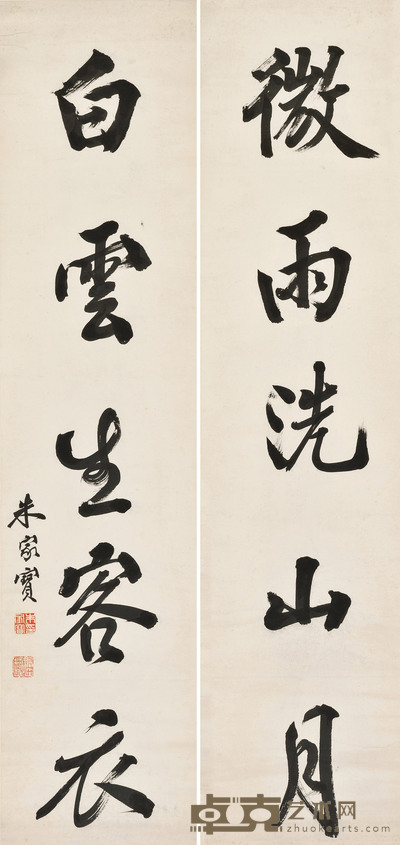 微雨洗山月
白雲生客衣
朱家寶
卓克艺术网
zhuokearts.com